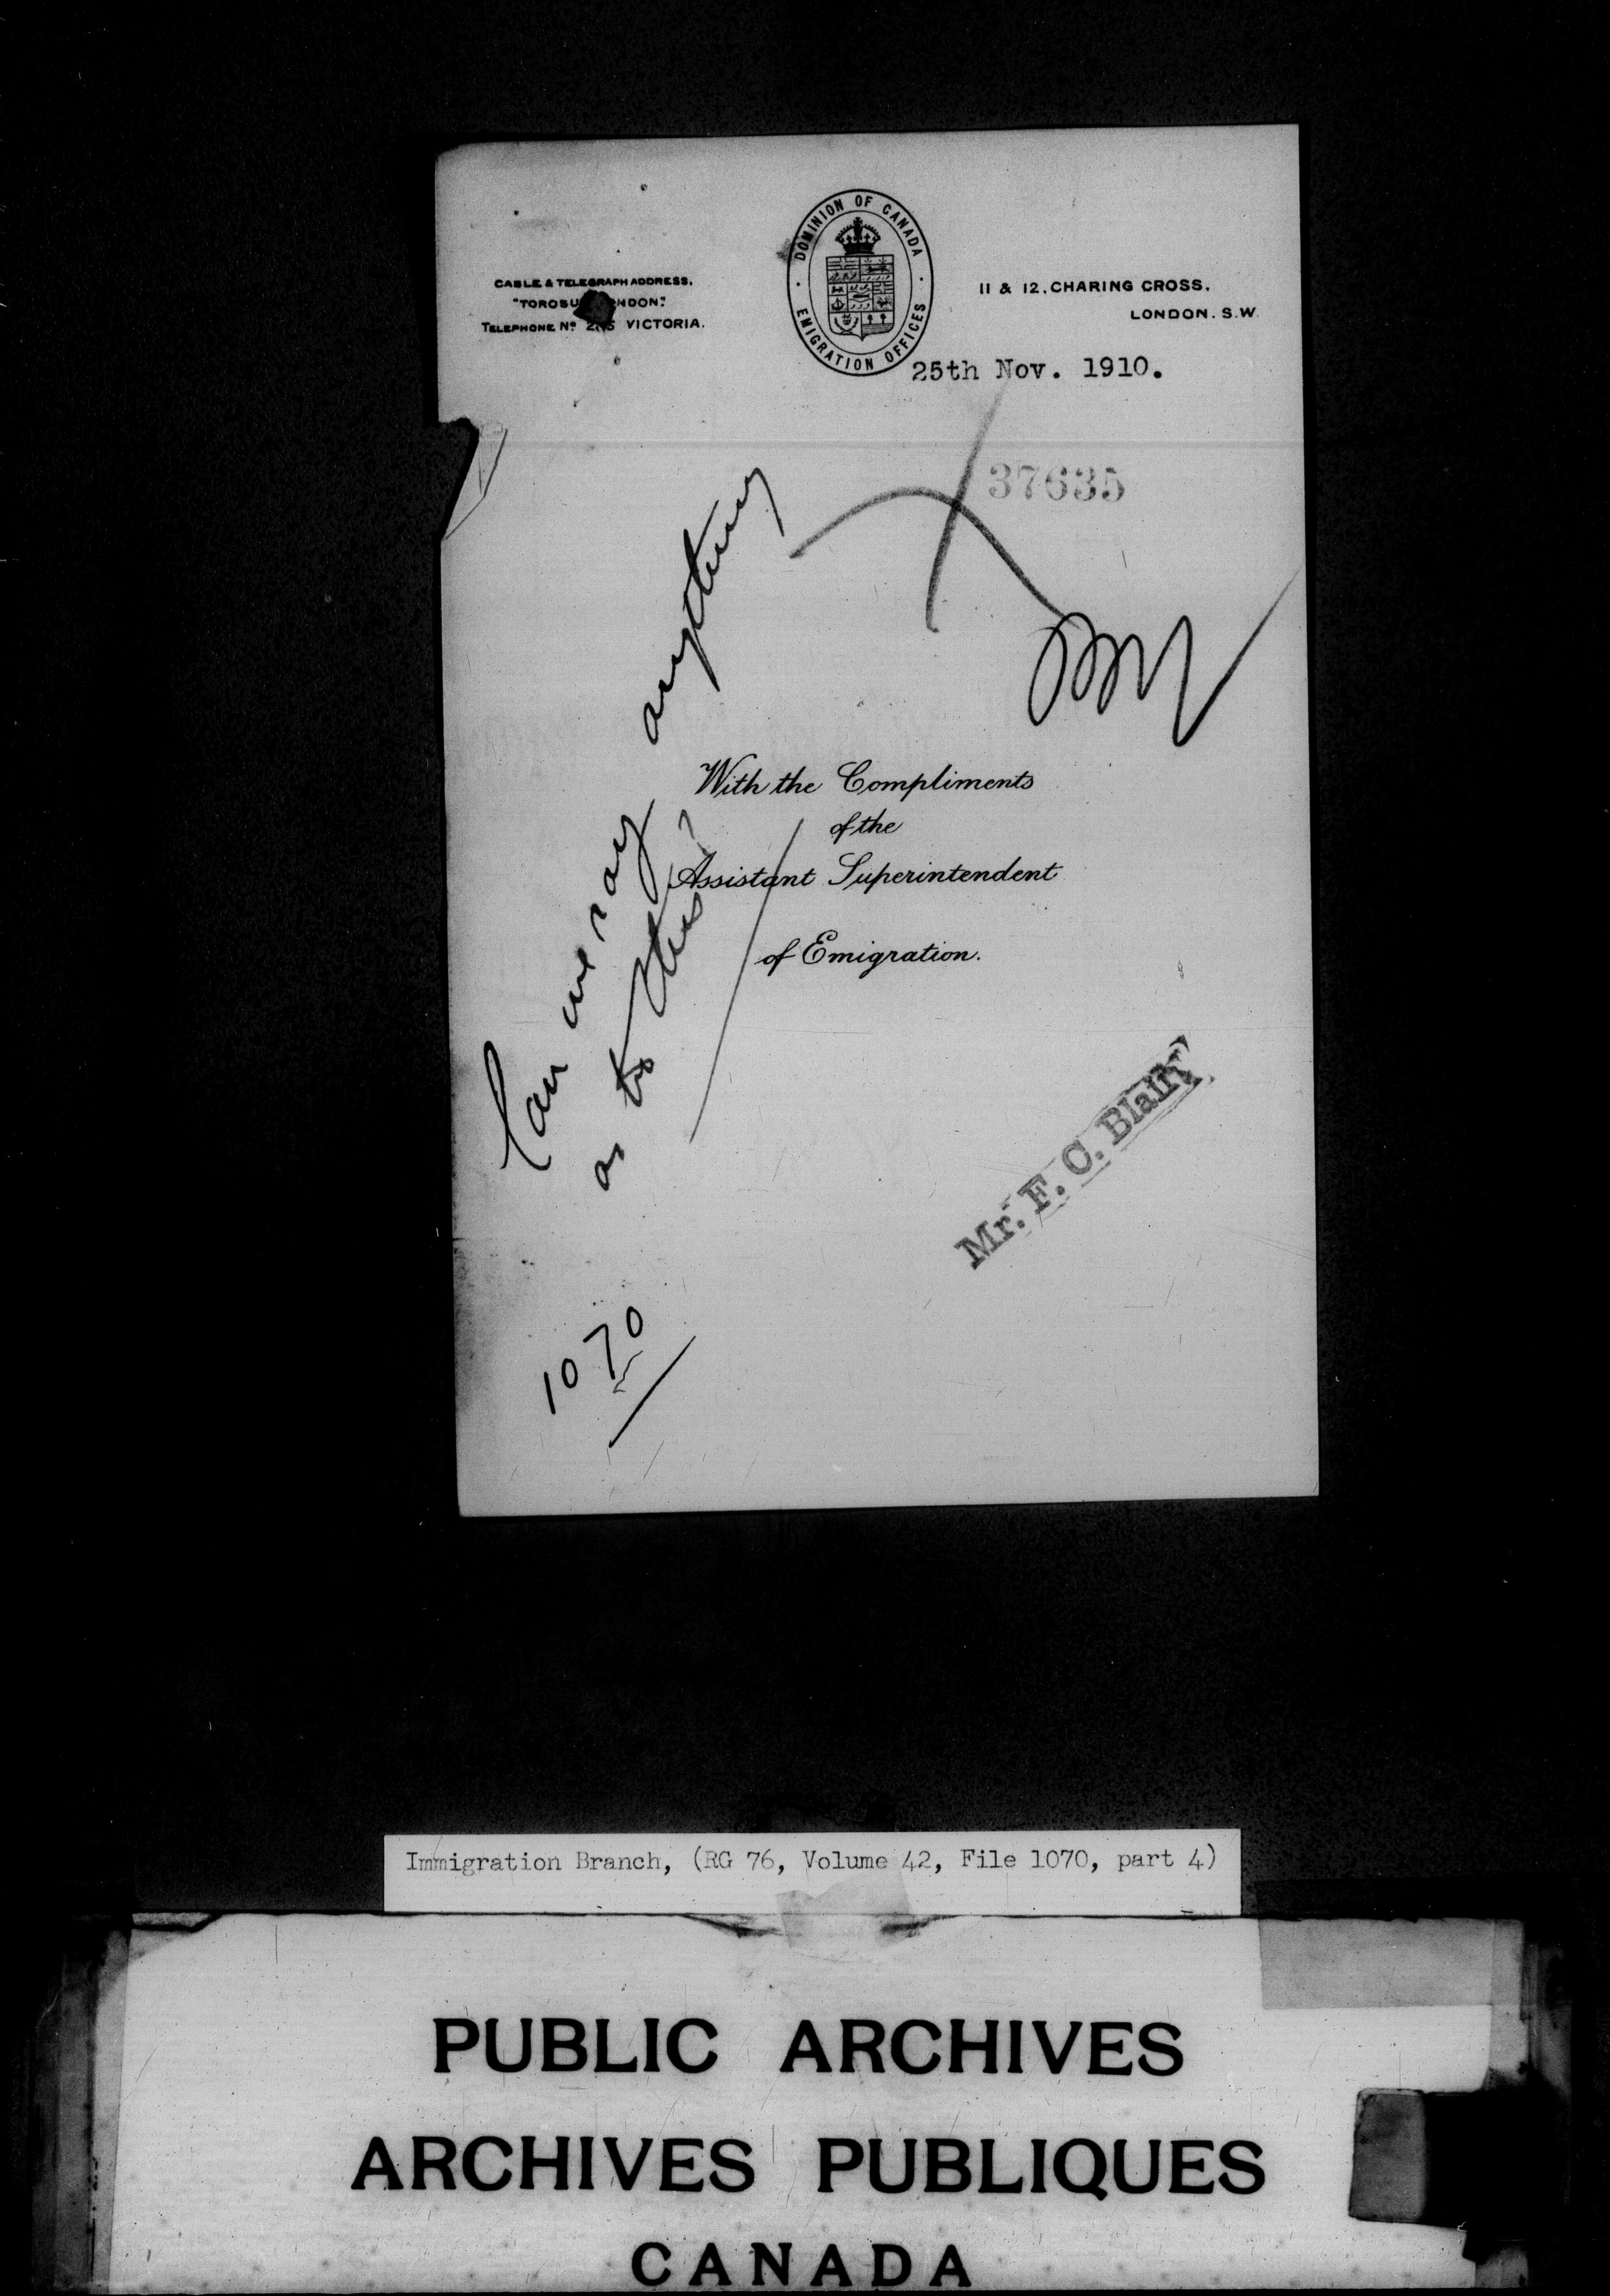 CABLE & TELEGRAPH ADDRESS,
TELEPHONE Nº VICTORIA.
DOMINION OF CANADA
EMIGRATION OFFICES
11 & 12, CHARING CROSS.
LONDON. S.W.
25th Nov. 1910.
37635
Can we say anything
as to this?
With the Compliments
of the
Assistant Superintendent
of Emigration.
Mr. F. C. Blair
1070
Immigration Branch, (RG 76, Volume 42, File 1070, part 4)
PUBLIC ARCHIVES
ARCHIVES PUBLIQUES
CANADA